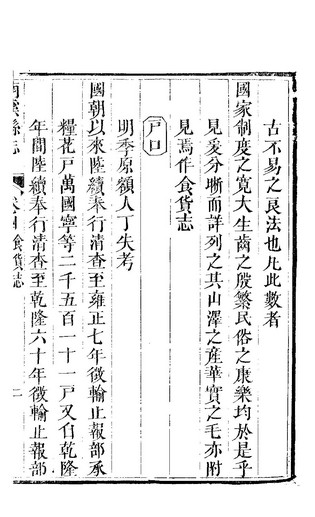 古不易之良法也凡此數者
國家制度之寬大生齒之殷繁民俗之康樂均於是乎
見爰分晰而詳列之其山澤之產華實之毛亦附
見焉作食貨志
戶口
明季原額人丁失考
國朝以來陸續奉行清查至雍正七年徵輸止報部承
糧花戶萬國寧等二千五百一十一戶又自乾隆
年間陸續奉行清查至乾隆六十年徵輸止報部
縣志
食貨志
二